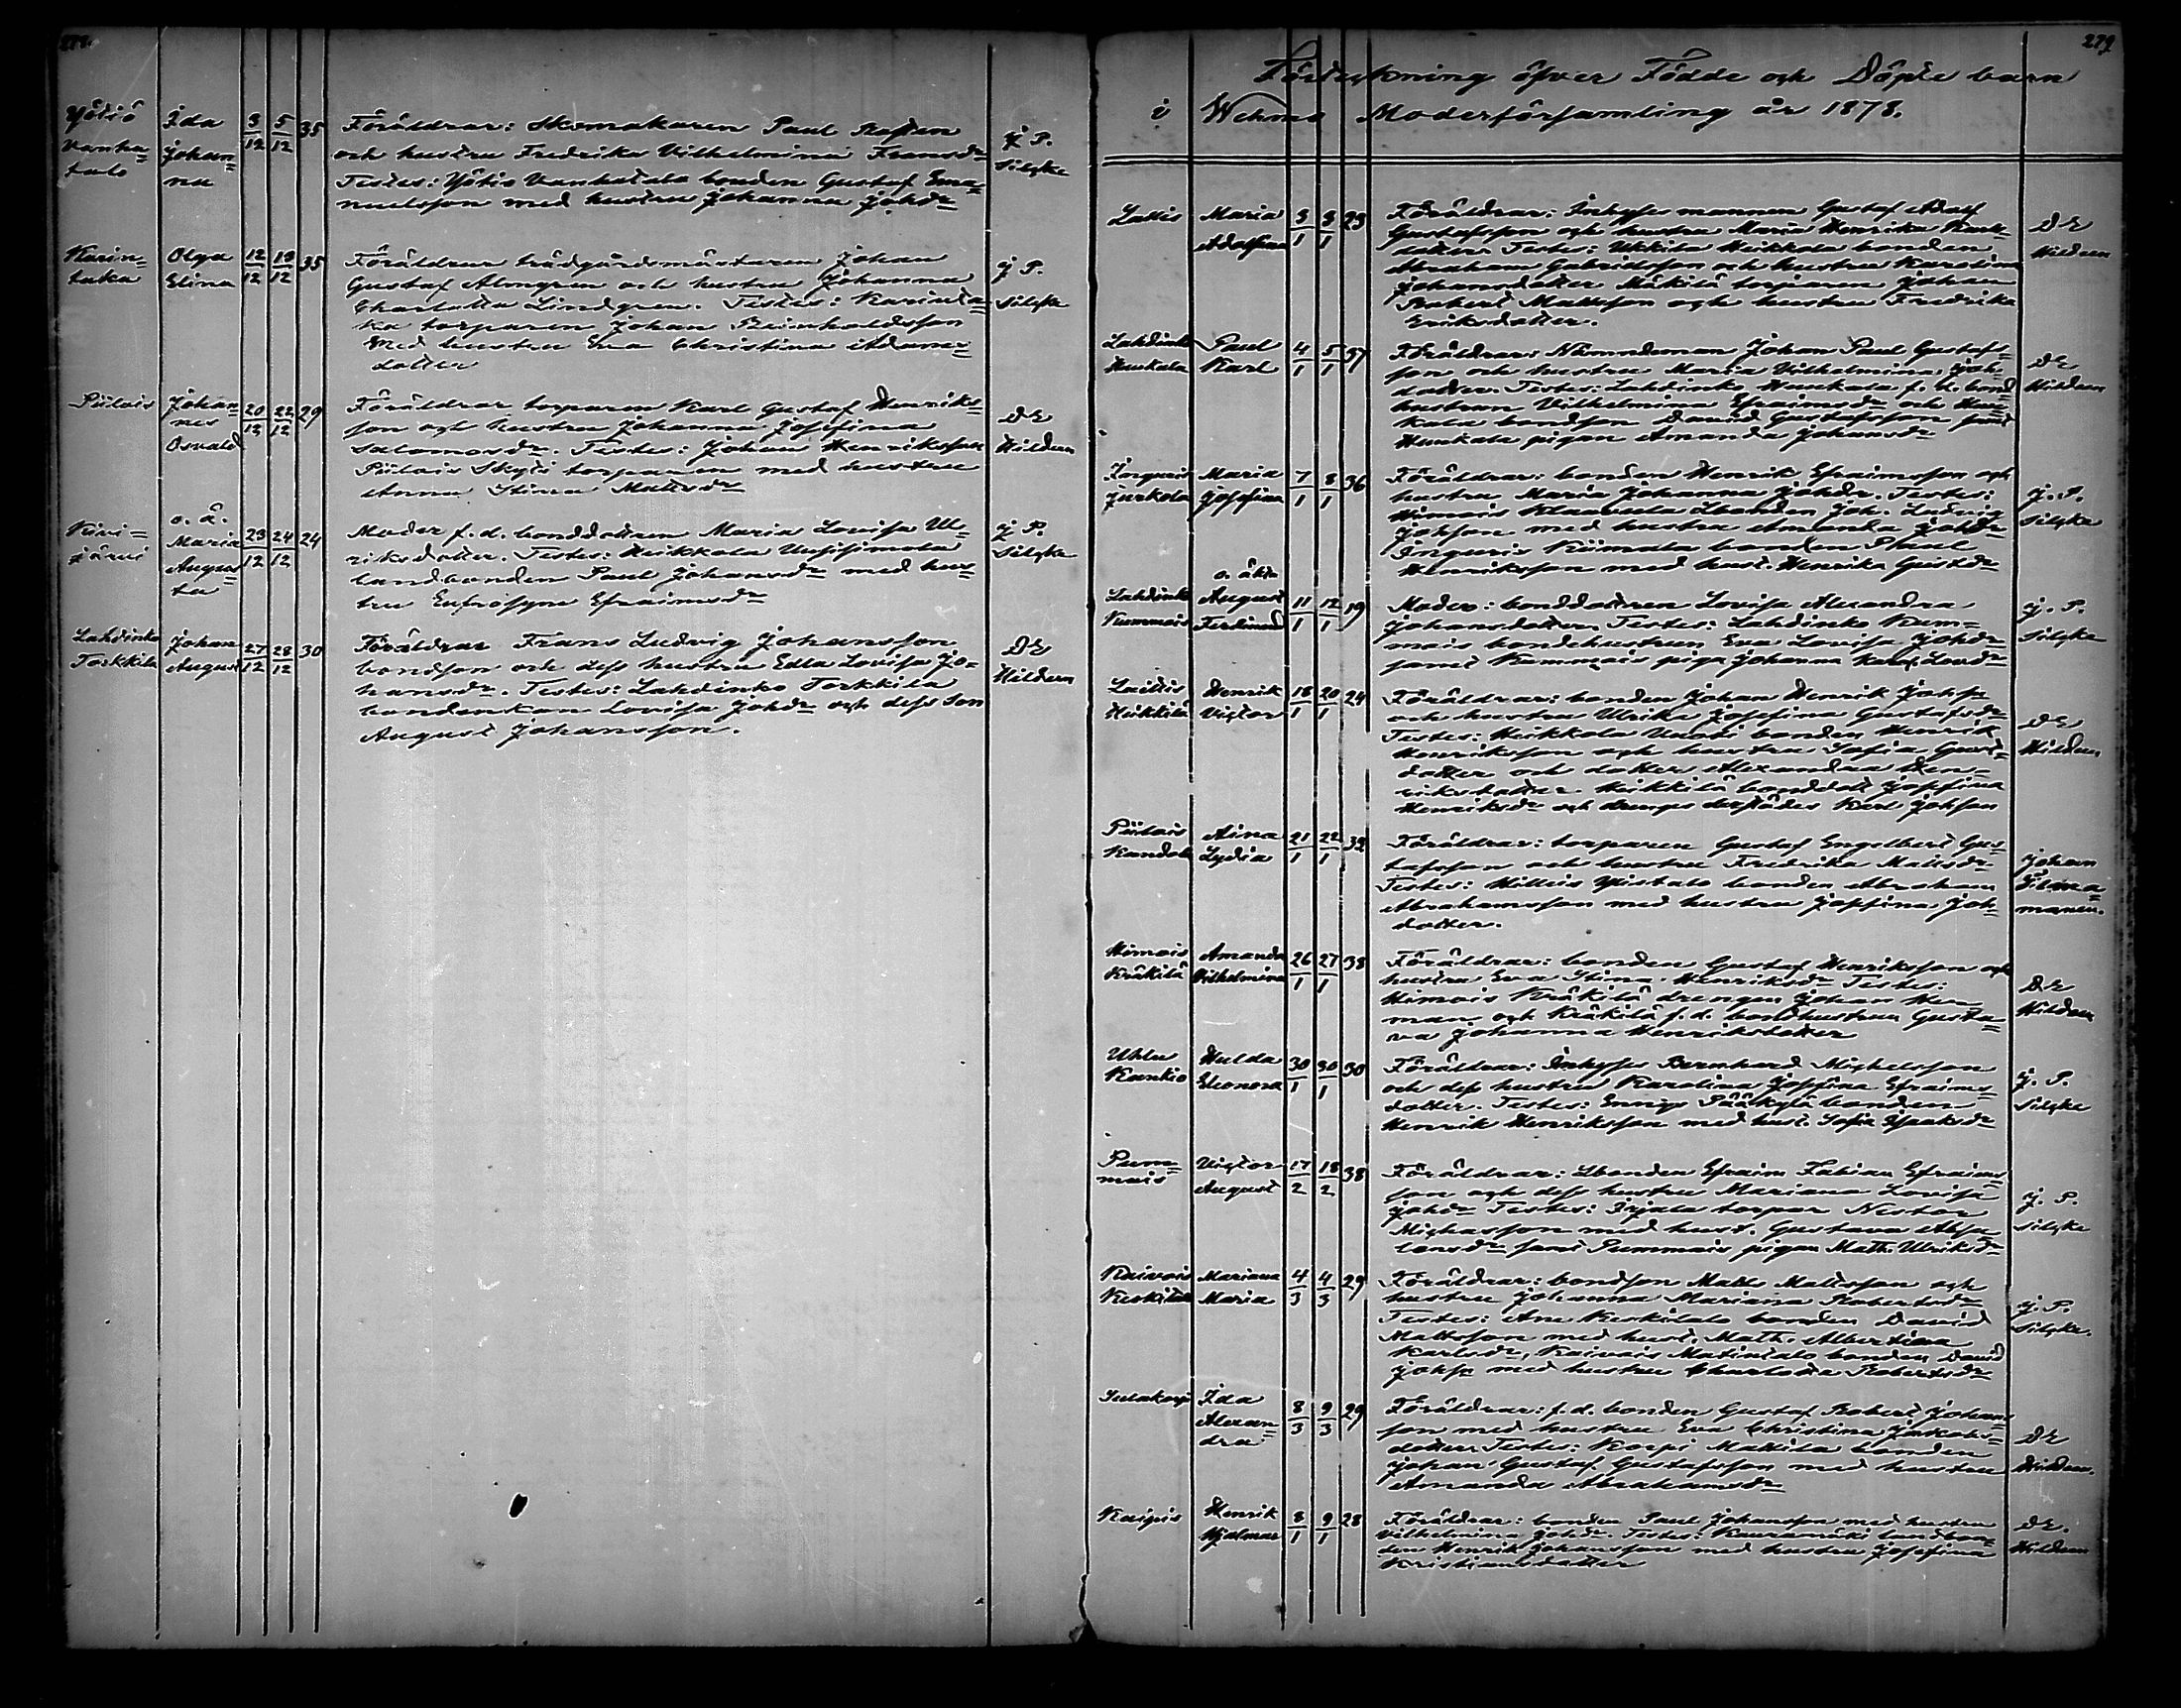 Yötiö
vanha=
talo
Ida
Johan=
na
3/12 5/12 35
Föräldrar: Skomakaren Paul
och hustru Fredrika Vilhelmina Fransdr
Testes: Yötiö Vanhatalo bonden Gustaf Ema=
nuelsson med hustru Johanna Johdr
J P.
Silqke
Karin=
taka
Olga
Elina
12/12 13/12 35
Föräldrar trädgårdsmästaren Johan
Gustaf Almgren och hustru Johanna
Charlotta Lindgren. Testes: Karinta=
ka torparen Johan Reinholdsson
Med hustru Eva Christina Adams=
dotter
J P.
Silqke
Piilois
Johan=
nes
Osvald
20/12 22/12 29
Föräldrar torparen Karl Gustaf Henriks=
son och hustru Johanna Josefina
Salomosdr. Testes: Johan Henriksson
Piilois Skyti torparen med hustru
Anna Stina Mattsdr
D E
Hilden
Kivi=
järvi
o. ä.
Maria
Augus=
ta
23/12 24/12 24
Moder f. d. bonddottren Maria Lovisa Ul=
riksdotter. Testes: Heikkola Uusisimola
landbonden Paul Johansdr med hus=
tru Eufrosyne Efraimsdr
J P.
Silqke
Lahdinko
Torkkila
Johan
August
27/12 28/12 30
Föräldrar Frans Ludvig Johansson
bondson och dess hustru Edla Lovisa Jo=
hansdr. Testes: Lahdinko Torkkila
bondenkan Lovisa Johdr och dess son
August Johansson.
D E
Hilden
279
Förteckning öfver Födde och Döpte barn
i Wehmo Moderförsamling år 1878.
Lallis
Maria
Adolfina
3/1 3/1 23
Föräldrar: Inhyses mannen Gustaf Adolf
Gustafsson och hustru Maria Henrika
dotter Testes: Ukkila Heikkola bonden
Abraham Gabrielsson och hustru Karolina
Johansdotter Mäkilä torparen Johan
Robert Mattsson och hustru Fredrika
Eriksdotter.
D E
Hilden
Lahdinko
Hunkala
Paul
Karl
4/1 5/1 37
Föräldrar: Nämndeman Johan Paul Gustafs=
son och hustru Maria Vilhelmina Joh.
dotter. Testes: Lahdinko Hunkala f. d. bond
hustrun Vilhelmina Efraimsdr och Hun=
kala bondson David Gustafsson samt
Hunkala pigan Amanda Johansdr
D E
Hilden
Inguris
Jurkola
Maria
Josefina
7/1 8/1 36
Föräldrar: bonden Henrik Efraimsson och
hustru Maria Johanna Johdr. Testes:
Himois Klaavuela Lbonden Joh. Ludvig
Johsson med hustru Amanda Johdr
Inguris Kiimala bonden Paul
Henriksson med hust. Henrika Gustdr
J. P.
Silqke
Lahdinko
Kummais
o. äkta
August
Ferdinand
11/1 12/1 19
Moder: bonddottren Lovisa Alexandra
Johansdotter Testes: Lahdinko Kum=
mais bondehustrun Eva Lovisa Johdr
samt Kummais piga Johanna Karol. Leondr
J. P.
Silqke
Laitis
Heikkilä
Henrik
Victor
18/1 20/1 24
Föräldrar: bonden Johan Henrik Johss
och hustru Ulrika Josefina Gustafsdr
Testes: Heikkola Uusi bonden Henrik
Henriksson och hustru Sofia Gust=
dotter och dotter Alexandra Hen=
riksdotter Heikkilä bonddott Josefina
Henriksdr och drengen derstädes Karl Johsson
D E
Hilden
Piilois
Kandola
Aina
Lydia
21/1 22/1 32
Föräldrar: torparen Gustaf Engelbert Gus=
tafsson och hustru Fredrika Mattsdr
Testes: Hilleis Ylistalo bonden Abraham
Abrahamsson med hustru Josefina Joh
dotter.
Johan
Ilma=
nanen.
Himois
Kräkilä
Amanda
Vilhelmina
26/1 27/1 38
Föräldrar: bonden Gustaf Henriksson och
hustru Eva Stina Henriksdr Testes:
Himois Kräkilä drengen Johan Her
man och Kräkilä f. d. bondhustrun Gusta=
va Johanna Henriksdotter
D E
Hilden
Uhlu
Kankio
Hulda
Eleonora
30/1 30/1 30
Föräldrar: Inhyses Bernhard Michelsson
och dess hustru Karolina Josefina Efraims=
dotter. Testes: Ennys Pääkylä bonden
Henrik Henriksson med hust. Sofia Isaaksdr
J. P.
Silqke
Pum=
mais
Victor
August
17/2 18/2 38
Föräldrar: Lbonden Efraim Fabian Efraims
son och dess hustru Mariana Lovisa
Johdr Testes: Irjala torpar Nestor
Michasson med hust. Gustava Absa=
lonsdr samt Pummais pigan Math. Ulriksdr
J. P.
Silqke
Kaivois
Keskitalo
Mariana
Maria
4/3 4/3 29
Föräldrar: bondson Matts Mattsson och
hustru Johanna Mariana Robertsdr
Testes: Ane Keskitalo bonden David
Mattsson med hust. Math. Albertina
Karlsdr, Kaivois Matintalo bonden David
Johss med hustru Charlotta Robertsdr
J. P.
Silqke.
Ida
Alexan=
dra
8/3 9/3 29
Föräldrar: f. d. bonden Gustaf Robert Johans
son med hustru Eva Christina Jakobs=
dotter Testes: Korpi Mattila bonden
Johan Gustaf Gustafsson med hustru
Amanda Abrahamsdr
D E
Hilden.
Kaipis
Henrik
Hjalmar
8/1 9/1 28
Föräldrar: bonden Paul Johansson med hustru
Vilhelmina Johdr. Testes: landbon=
den Henrik Johansson med hustru Josefina
Kristiansdotter
D E.
Hilden